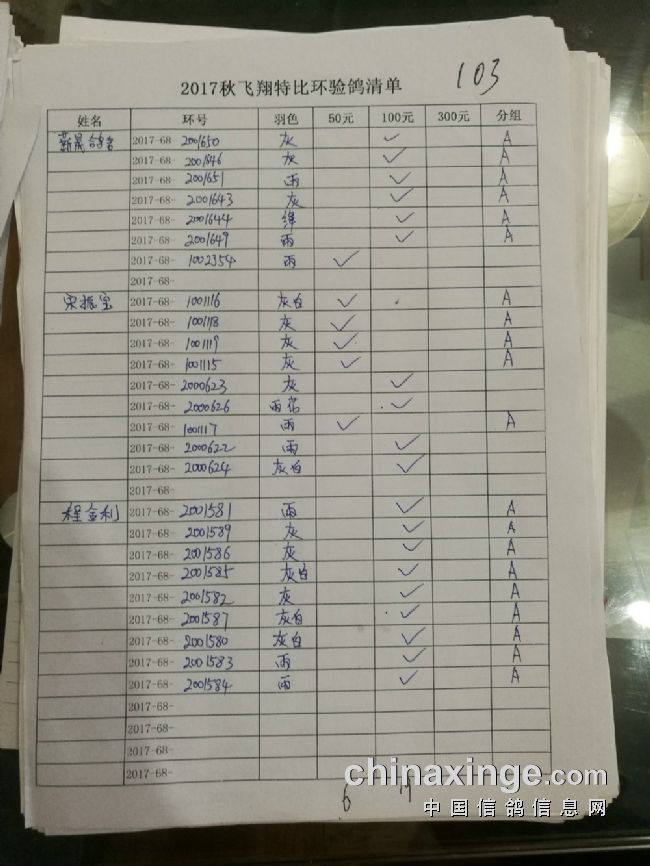 103
2017秋飞翔特比环验鸽清单
姓名 环号 羽色 50元 100元 300元 分组
2017-68- 2001650 灰 ✓ A
2017-68- 2001646 灰 ✓ A
2017-68- 2001651 雨 ✓ A
2017-68- 2001643 灰 ✓ A
2017-68- 2001644 绛 ✓ A
2017-68- 2001649 雨 ✓ A
2017-68- 1002354 雨 ✓
2017-68-
宋振宝 2017-68- 1001116 灰白 ✓ A
2017-68- 1001118 灰 ✓ A
2017-68- 1001119 灰 ✓ A
2017-68- 1001115 灰 ✓ A
2017-68- 2000623 灰 ✓
2017-68- 2000626 雨花 ✓
2017-68- 1001117 雨 ✓ A
2017-68- 2000622 雨 ✓
2017-68- 2000624 灰白 ✓
2017-68-
程金利 2017-68- 2001581 雨 ✓ A
2017-68- 2001589 灰 ✓ A
2017-68- 2001586 灰 ✓ A
2017-68- 2001585 灰白 ✓ A
2017-68- 2001582 灰 ✓ A
2017-68- 2001587 灰白 ✓ A
2017-68- 2001580 灰白 ✓ A
2017-68- 2001583 雨 ✓ A
2017-68- 2001584 雨 ✓ A
2017-68-
2017-68-
2017-68-
2017-68-
chinaxinge.com
6
中国信鸽信息网